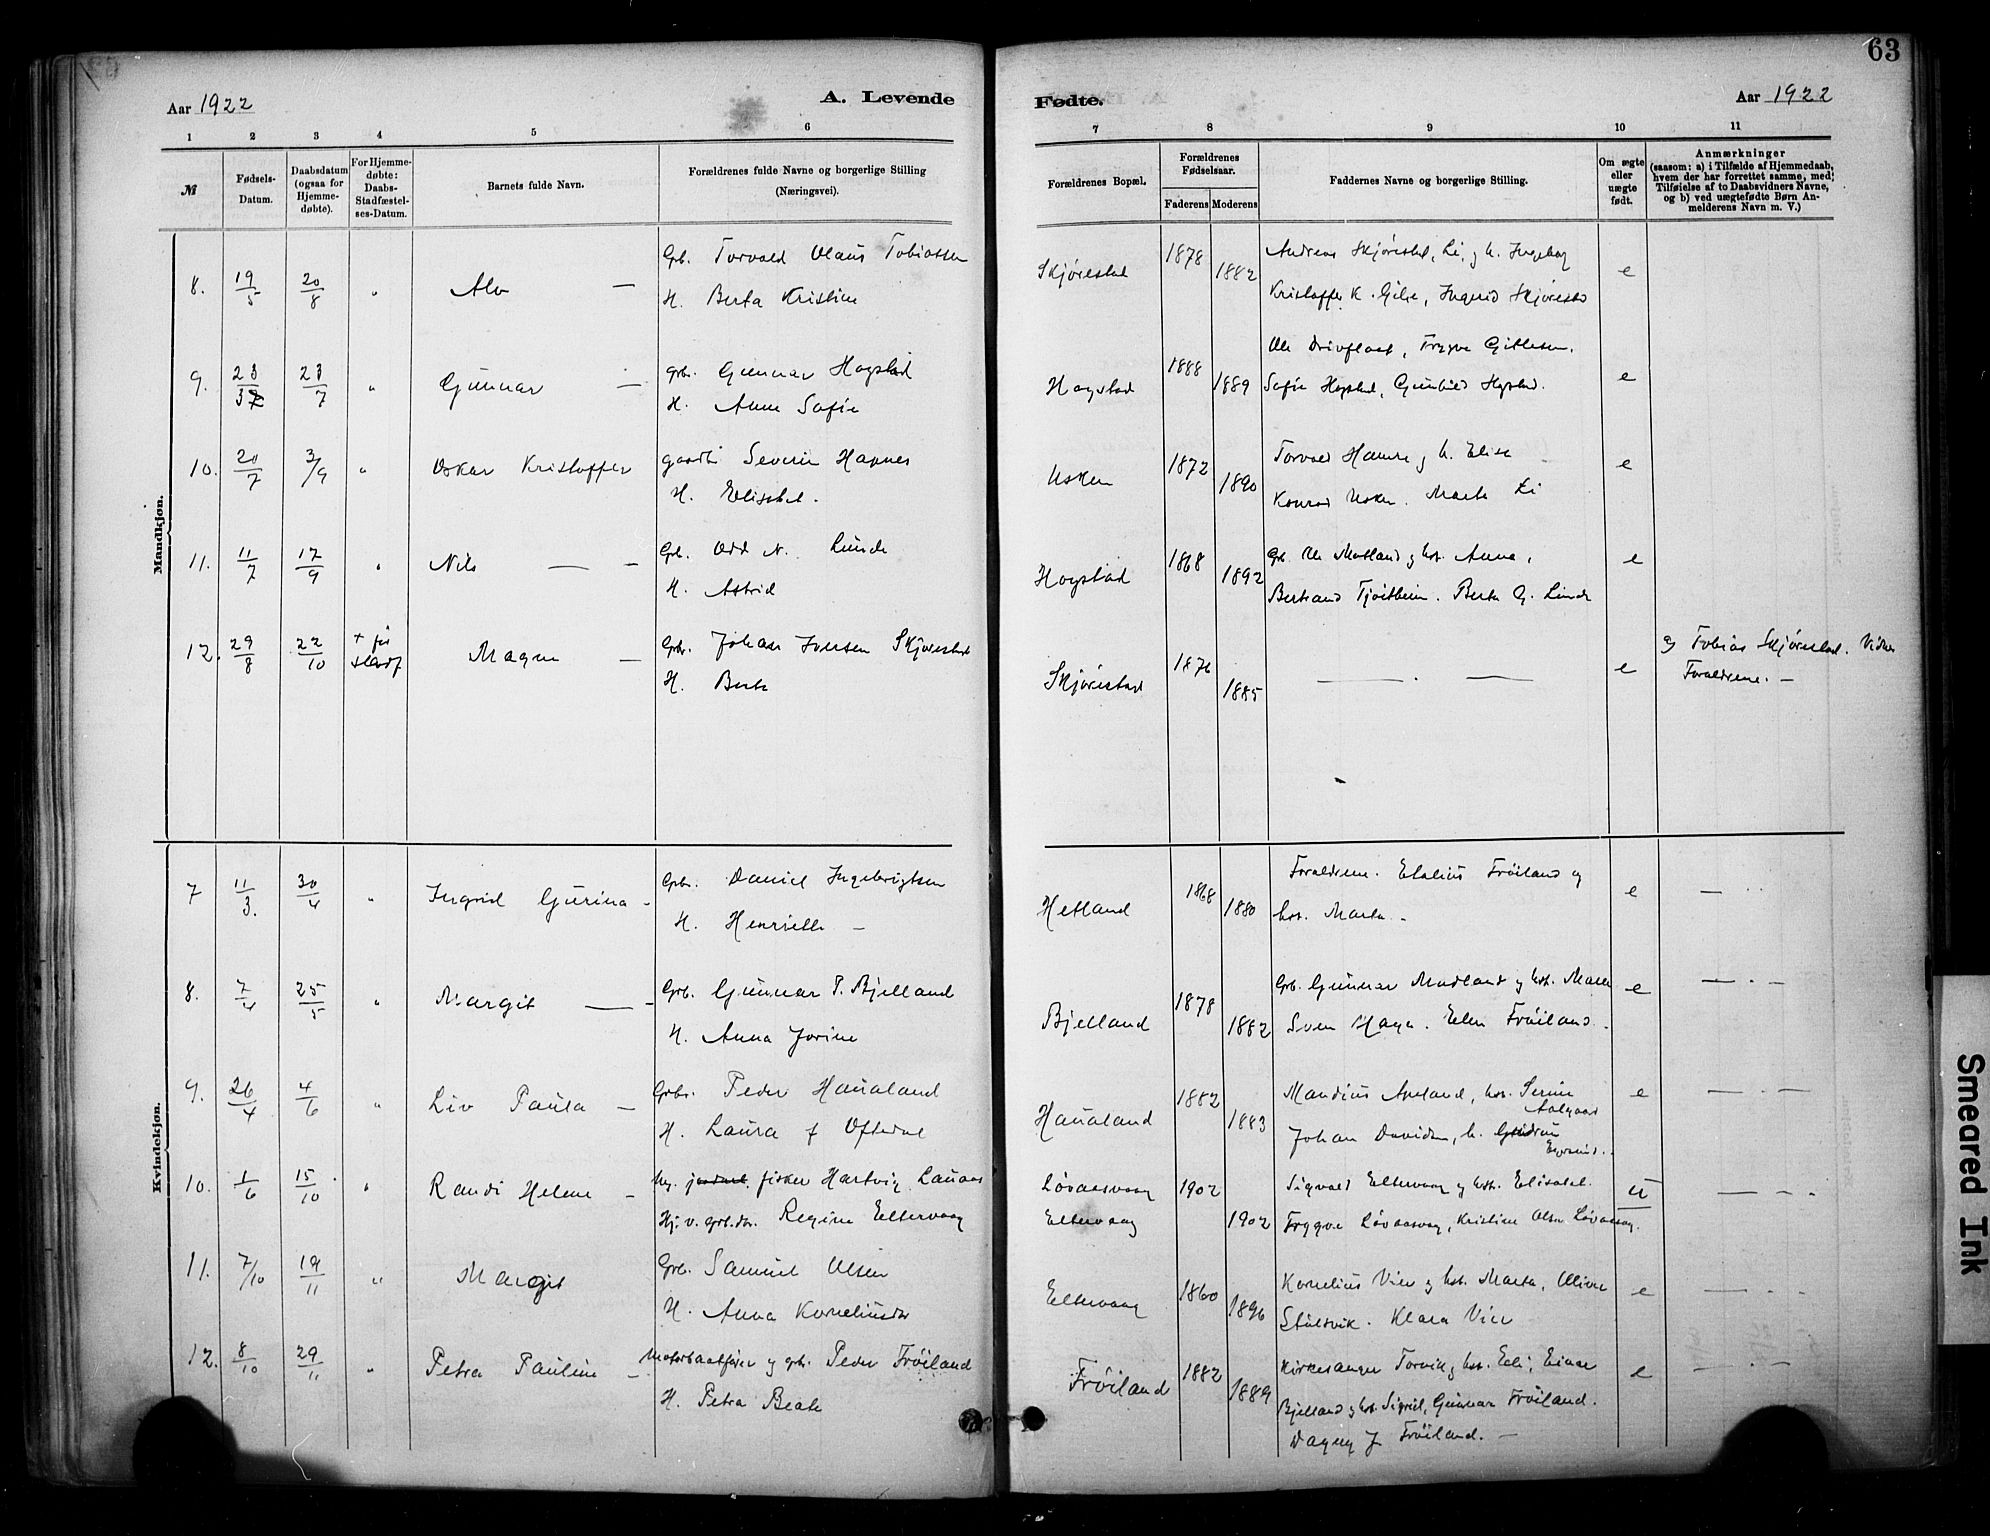 63
Aar 1922
A. Levende
Fødte.
Aar 1922
1 2 3 4 5 6 7 8 9 10 11
№
Fødsels-Datum.
Daabsdatum (ogsaa for Hjemmedøbte).
For Hjemmedøbte: Daabs-Stadfæstelses-Datum.
Barnets fulde Navn.
Forældrenes fulde Navne og borgerlige Stilling (Næringsvei).
Forældrenes Bopæl.
Forældrenes Fødselsaar.
Faderens Moderens
Faddernes Navne og borgerlige Stilling.
Om ægte eller uægte født.
Anmærkninger (saasom: a) i Tilfælde af Hjemmedaab, hvem der har forrettet samme, med Tilføielse af to Daabsvidners Navne, og b) ved uægtefødte Børn Anmelderens Navn m. V.)
Mandkjøn.
8. 19/5 20/8 " Alv — Grb. Torvald Olaus Tobiassen
H. Berta Kristine
Skjørestad 1878 1882 Andreas Skjørestad, Li, og h. Ingeborg
Kristoffer K. Gilje, Ingrid Skjørestad e
9. 23/7 " Gunnar — Grb. Gunnar Hogstad
H. Anne Sofie
Hogstad 1888 1889 Ole Drivflaat, Trygve Gitlesen.
Sofie Hogstad, Gunhild Hogstad. e
10. 20/7 3/9 " Oskar Kristoffer Severin Hapnes
H. Elisabet.
Usken 1872 1890 Torvald Hamre og h. Elise
Konrad Usken. Marta Li e
11. 11/7 17/9 " Nils — Grb. Odd N. Lunde
H. Astrid
Hogstad 1868 1892 Grb. Ole Matland og hst. Anna,
Bertrand Tjøstheim. Berta G. Lunde e
12. 29/8 22/10 + før stadf Magne — Grb. Johan Iversen Skjørestad
H. Berta
Skjørestad 1876 1885 — . — e
a) Tobias Skjørestad. Vidner
Forældrene. —
Kvindekjøn.
7 11/3. 30/4 " Ingrid Gurina - Grb. Daniel Ingebrigtsen
H. Henriette —
Hetland 1868 1880 Forældrene. Elalius Frøiland og
hst. Marta - e —
8. 7/4 25/5 " Margit — Grb. Gunnar T. Bjelland
H. Anna Jorine
Bjelland 1878 1882 Grb. Gunnar Madland og hst. Marta
Sven Haga. Elen Frøiland. e — . —
9. 26/4 4/6 " Liv Paula — Grbr. Peder Haualand
H. Laura f Oftedal
Haualand 1882 1883 Mandius Aneland, hst. Serine
Aalgaard
Johan Davidsen, h. Gudrun
e — . —
10. 1/6 15/10 " Randi Helene — fisker Hartvig Lauaas
Regine Eltervaag
Løvaasvaag
Eltervaag 1902 1902 Sigvald Eltervaag og hst. Elisabet.
Trygve Løvaasvaag, Kristine Olsen Løvaasvag. u — - .
11. 7/10 19/11 " Margit Grb. Samuel Olsen
H. Anna Korneliusdtr
Eltervaag 1860 1896 Kornelius Vier og hst. Marta, Oline
Stølsvik. Klara Vier e —
12. 8/10 29/11 " Petra Pauline — Motorbaatfører og grb. Peder Frøiland
H. Petra Beate
Frøiland 1882 1889 Kirkesanger Torvik og hst. Elli, Einar
Bjelland og hst. Sigrid, Gunnar Frøiland.
Dagny J Frøiland. — e — . —
Smeared Ink